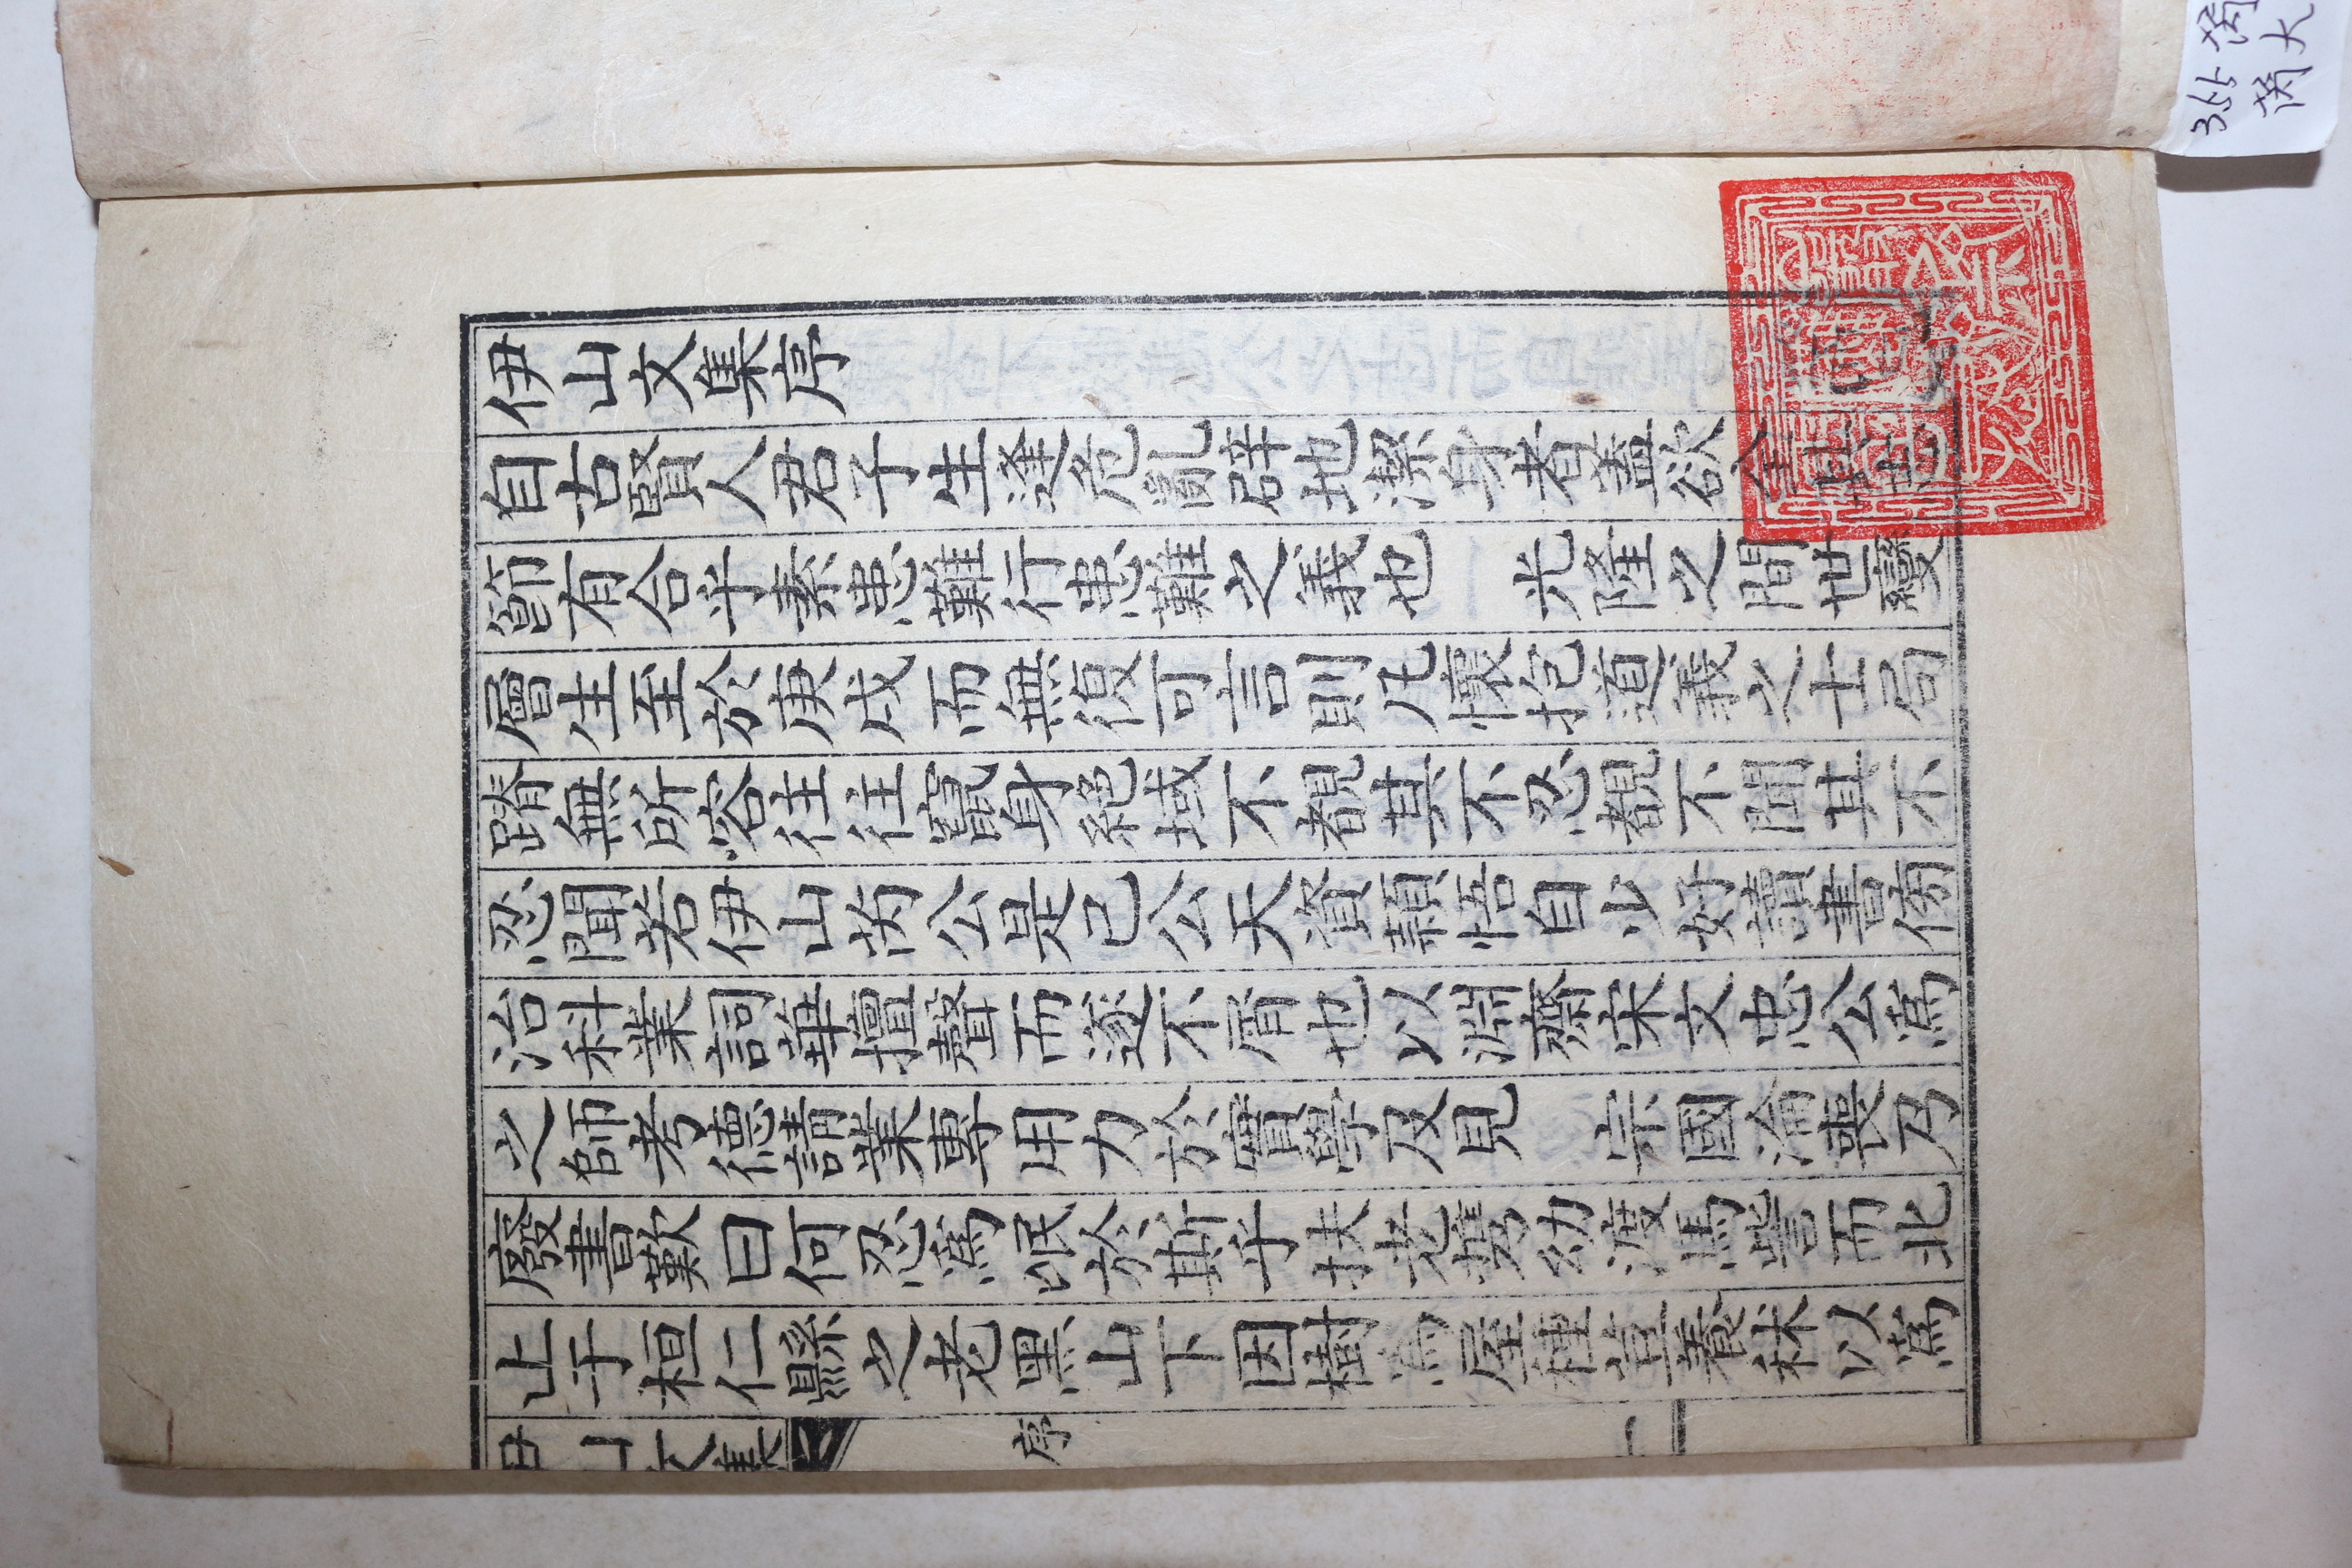 伊山文集序
自古賢人君子生逢危亂辟地潔身者蓋欲全
節有合乎素患難行患難之義也 光隆之間世變
層生至於庚戌而無復可言則凡懷抱道義之士局
蹐無所容往往竄身絶域不覩其不忍覩不聞其不
忍聞若伊山芮公是已公天資穎悟自少好讀書傍
治科業詞華擅聲而遂不屑也以淵齋宋文忠公爲
之師考德請業專用力於實學及見 宗國淪喪乃
廢書歎曰何忍爲氓於斯乎扶老携幼渡馬訾而北
止于桓仁縣之老黑山下因樹爲屋種豆養秫以爲
伊山文集 序 一
365 芮
芮大